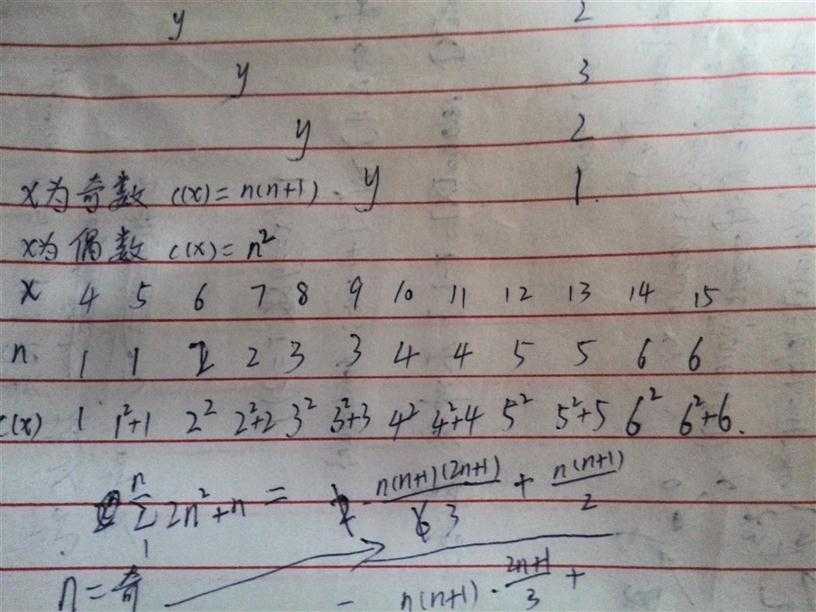 y 2
y 3
y 2
x为奇数 c(x)=n(n+1). y 1.
x为偶数 c(x)=n²
x 4 5 6 7 8 9 10 11 12 13 14 15
n 1 1 2 2 3 3 4 4 5 5 6 6
c(x) 1 1²+1 2² 2²+2 3² 3²+3 4² 4²+4 5² 5²+5 6² 6²+6.
n
∑ 2n²+n = n(n+1)(2n+1)/3 + n(n+1)/2
1
n=奇 = n(n+1)·(2n+1)/3 +